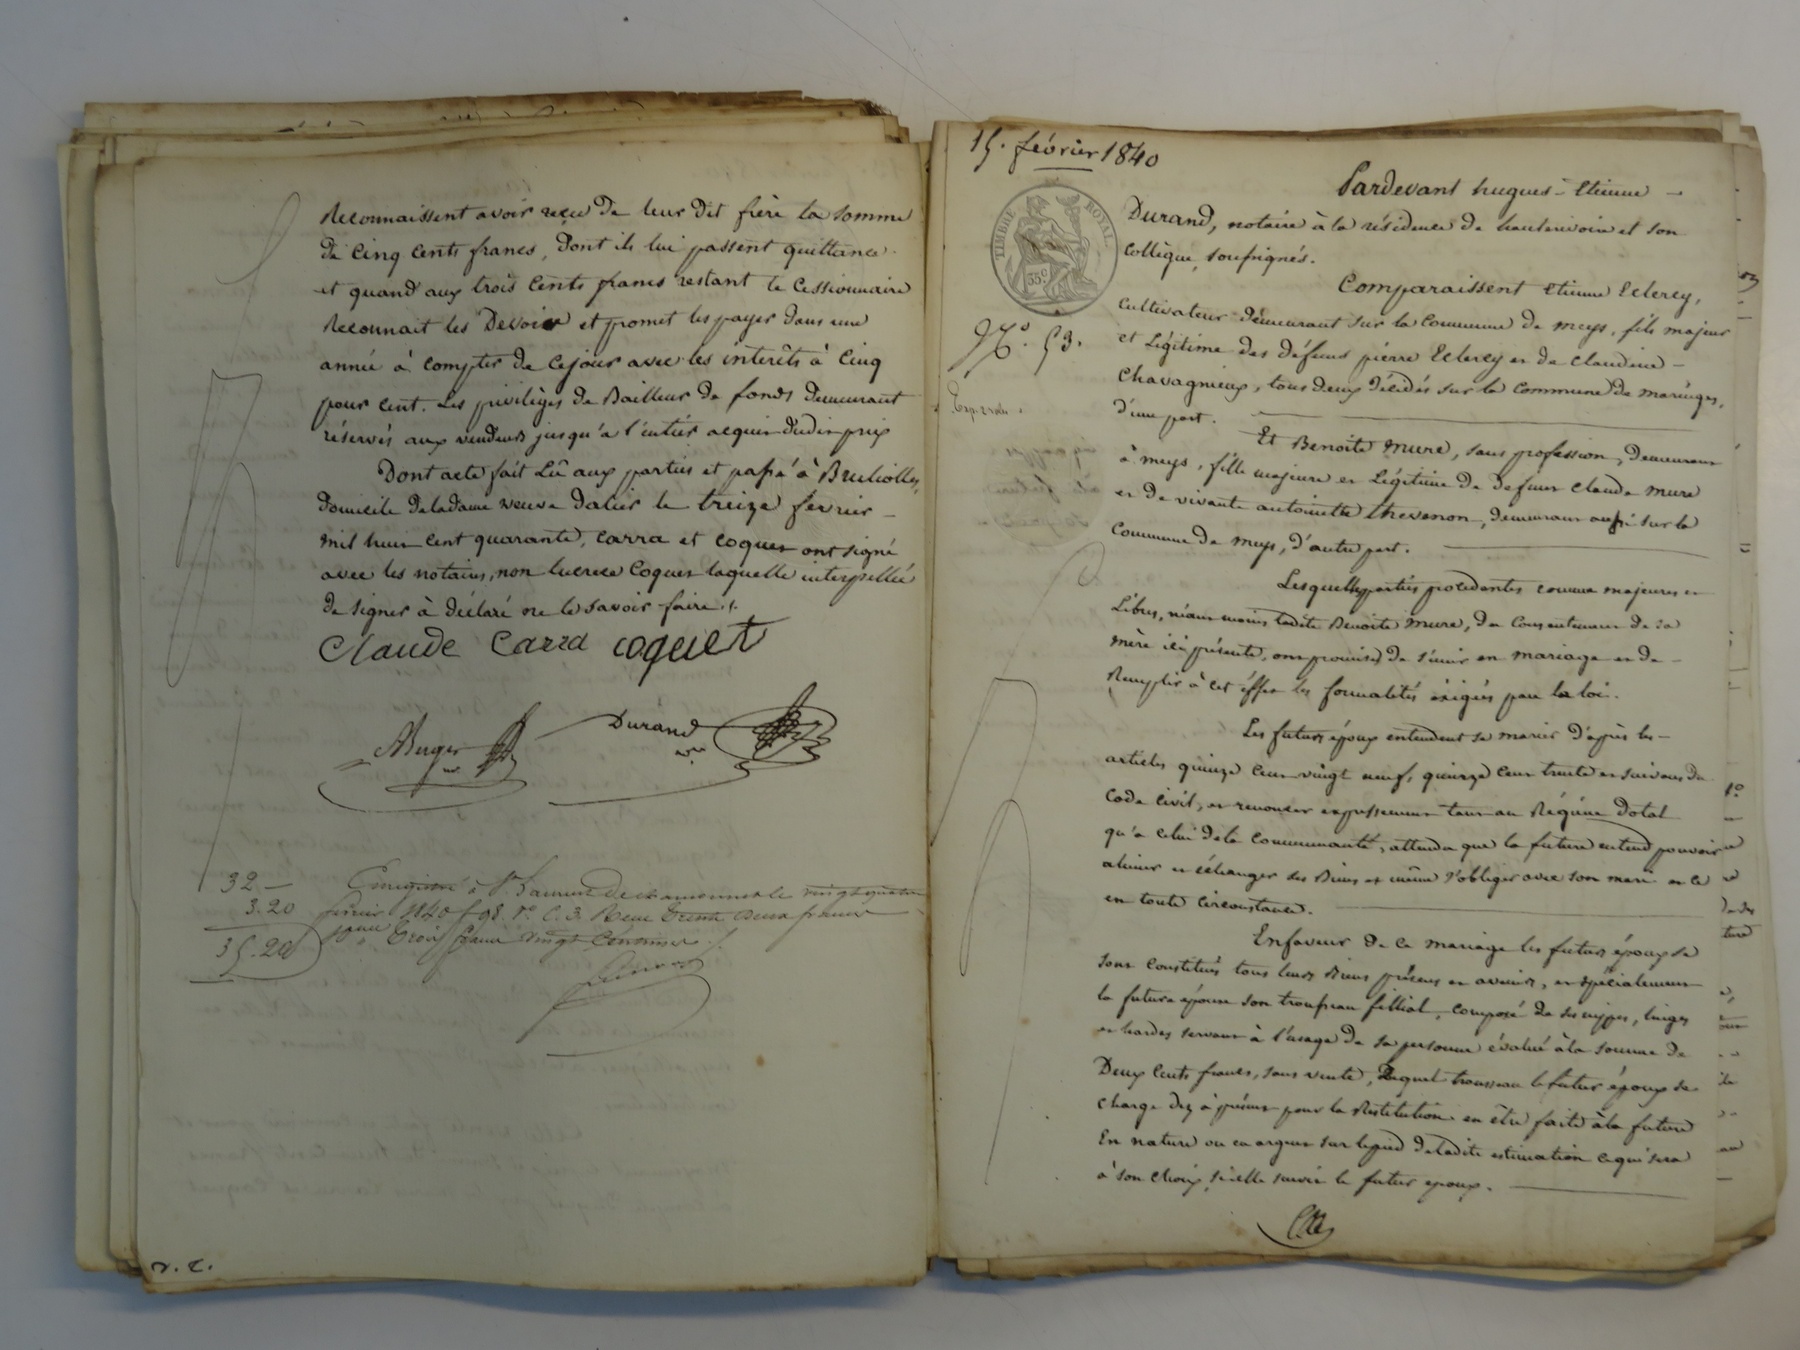 Reconnaissent avoir reçu de leur dit frère la somme
de Cinq Cents francs, dont ils lui passent quittance.
et quand aux trois Cents francs restant le Cessionnaire
Reconnait les Devoir et promet les payer dans une
année à compter de Cejour avec les interêts à Cinq
pour Cent. Les privilèges de Bailleur de fonds demeurant
réservés aux vendeurs jusqu'a l'entier acquit dudit prix
Dont acte fait Lû aux parties et passé à Brulliolles,
domicile deladame veuve dalier le treize fevrier
mil huit Cent quarante, Carra et Coquet ont signé
avec les notaires, non lucrece Coquet laquelle interpellée
de signer à déclaré ne le savoir faire ./.
Claude Carra coquet
Durand
32 —
3.20
35.20
Enregistré à St. Laurent de chamousset le vingt quatre
fevrier 1840 f 98. Vo. C. 3. Recu trente deux francs
pour trois francs vingt Centimes ./.
15. février 1840
TIMBRE ROYAL
35 C
No. 53.
Pardevant hugues-Etienne
Durand, notaire à la résidence de hauterivoire et son
Collègue, soussignés.
Comparaissent Etienne Eclercy,
Cultivateur demeurant sur la Commune de meys, fils majeur
et Légitime des défunts pierre Eclercy et de Claudine
Chavagnieux, tous deux décédés sur la Commune de maringes,
d'une part.
Et Benoite Mure, sans profession, demeurant
à meys, fille majeure et Légitime de defunt Claude Mure
et de vivante antoinette thevenon, demeurant aussi sur la
Commune de meys, d'autre part.
Lesquelles parties procedantes comme majeures et
Libres, néanmoins ladite Benoite Mure, du Consentement de sa
mère ici présente, ont promis de s'unir en mariage et de
Remplir à cet éffet les formalités éxigées par la loi.
Les futurs époux entendent se marier d'après les
articles quinze Cent vingt neuf, quinze Cent trente et suivans du
Code Civil, et renoncer expressement tant au Régime Dotal
qu'a celui dela Communauté, attendu que la future entend pouvoir
aliéner et échanger ses Biens et même s'obliger avec son mari et ce
en toute Circonstance.
Enfaveur de ce mariage les futurs époux se
sont Constitués tous leurs Biens présens et avenirs, et spécialement
la future épouse son trousseau fillial, composé de ses nippes, linges
et hardes servant à l'usage de sa personne évalué àla somme de
Deux Cents francs, sans vente, Duquel trousseau le futur époux se
charge dez à présent pour la Restitution en être faite àla future
En nature ou en argent sur lepied deladite estimation cequi sera
à son choix, si elle survit le futur epoux.